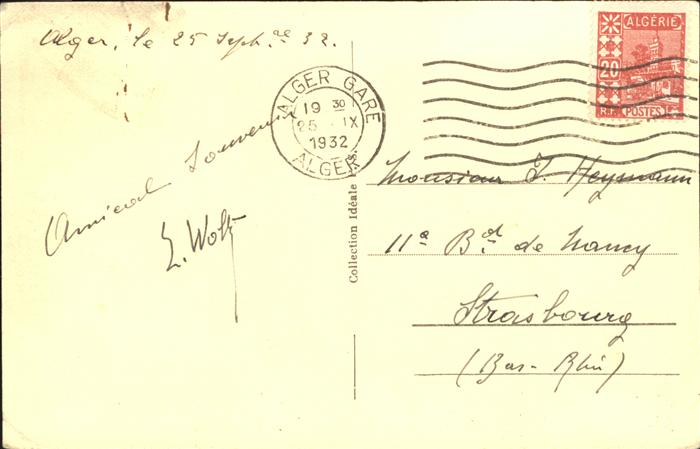 Alger, le 25 Sept.re 32.
ALGER GARE
19 30
25 IX
1932
ALGER
ALGÉRIE
20
R.F. POSTES
Amical Souvenir
Collection Idéale P.S.
Monsieur J. Heymann
11a Bd. de Nancy
Strasbourg
(Bas-Rhin)